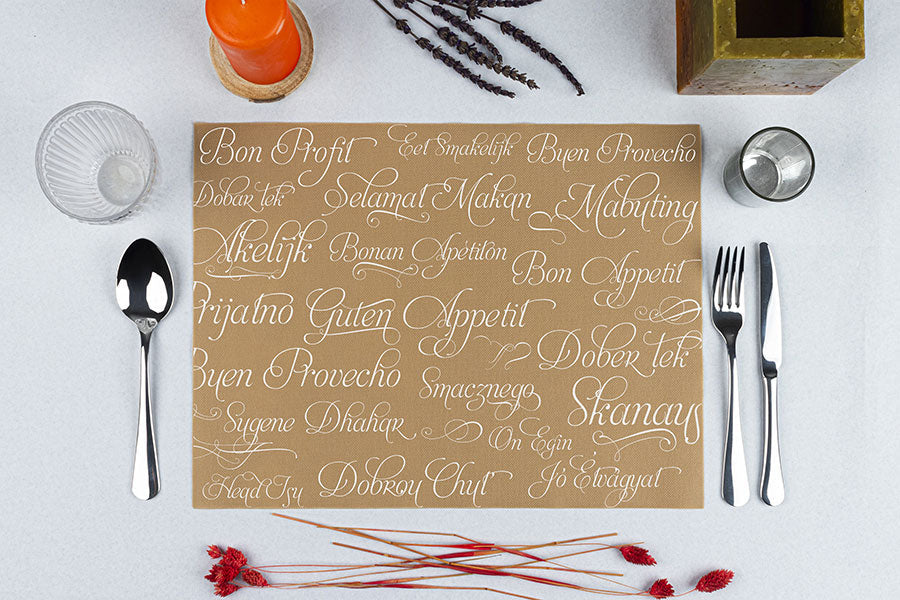 Bon Profit Eet Smakelijk Buen Provecho
Dobar tek Selamat Makan Mabuting
Akelijk Bonan Apétiton Bon Appetit
Prijatno Guten Appetit
Dober tek
Buen Provecho Smacznego Skanaus
Sygene Dhahar On Egin
Head Isu Dobrou Chut' Jó Étvágyat